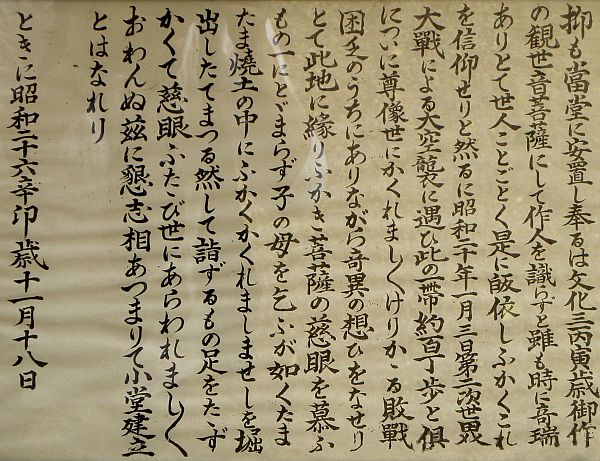 抑も當堂に安置し奉るは文化三丙寅歳御作
の觀世音菩薩にして作人を識らずと雖も時に奇瑞
ありとて世人ことごとく是に皈依しふかくこれ
を信仰せりと然るに昭和二十年一月三日第二次世界
大戰による大空襲に遇ひ此の一帶約百丁歩と俱
についに尊像世にかくれましくけりかゝる敗戰
困乏のうちにありながら奇異の想ひをなせり
とて此地に緣りふかき菩薩の慈眼を慕ふ
もの一にとゞまらず子の母を乞ふが如くたま
たま燒土の中にふかくかくれましませしを堀
出したてまつる然して詣ずるもの足をたゝず
かくて慈眼ふたゝび世にあらわれましく
おわんぬ茲に懇志相あつまりて小堂建立
とはなれり
ときに昭和二十六辛卯歳十一月十八日